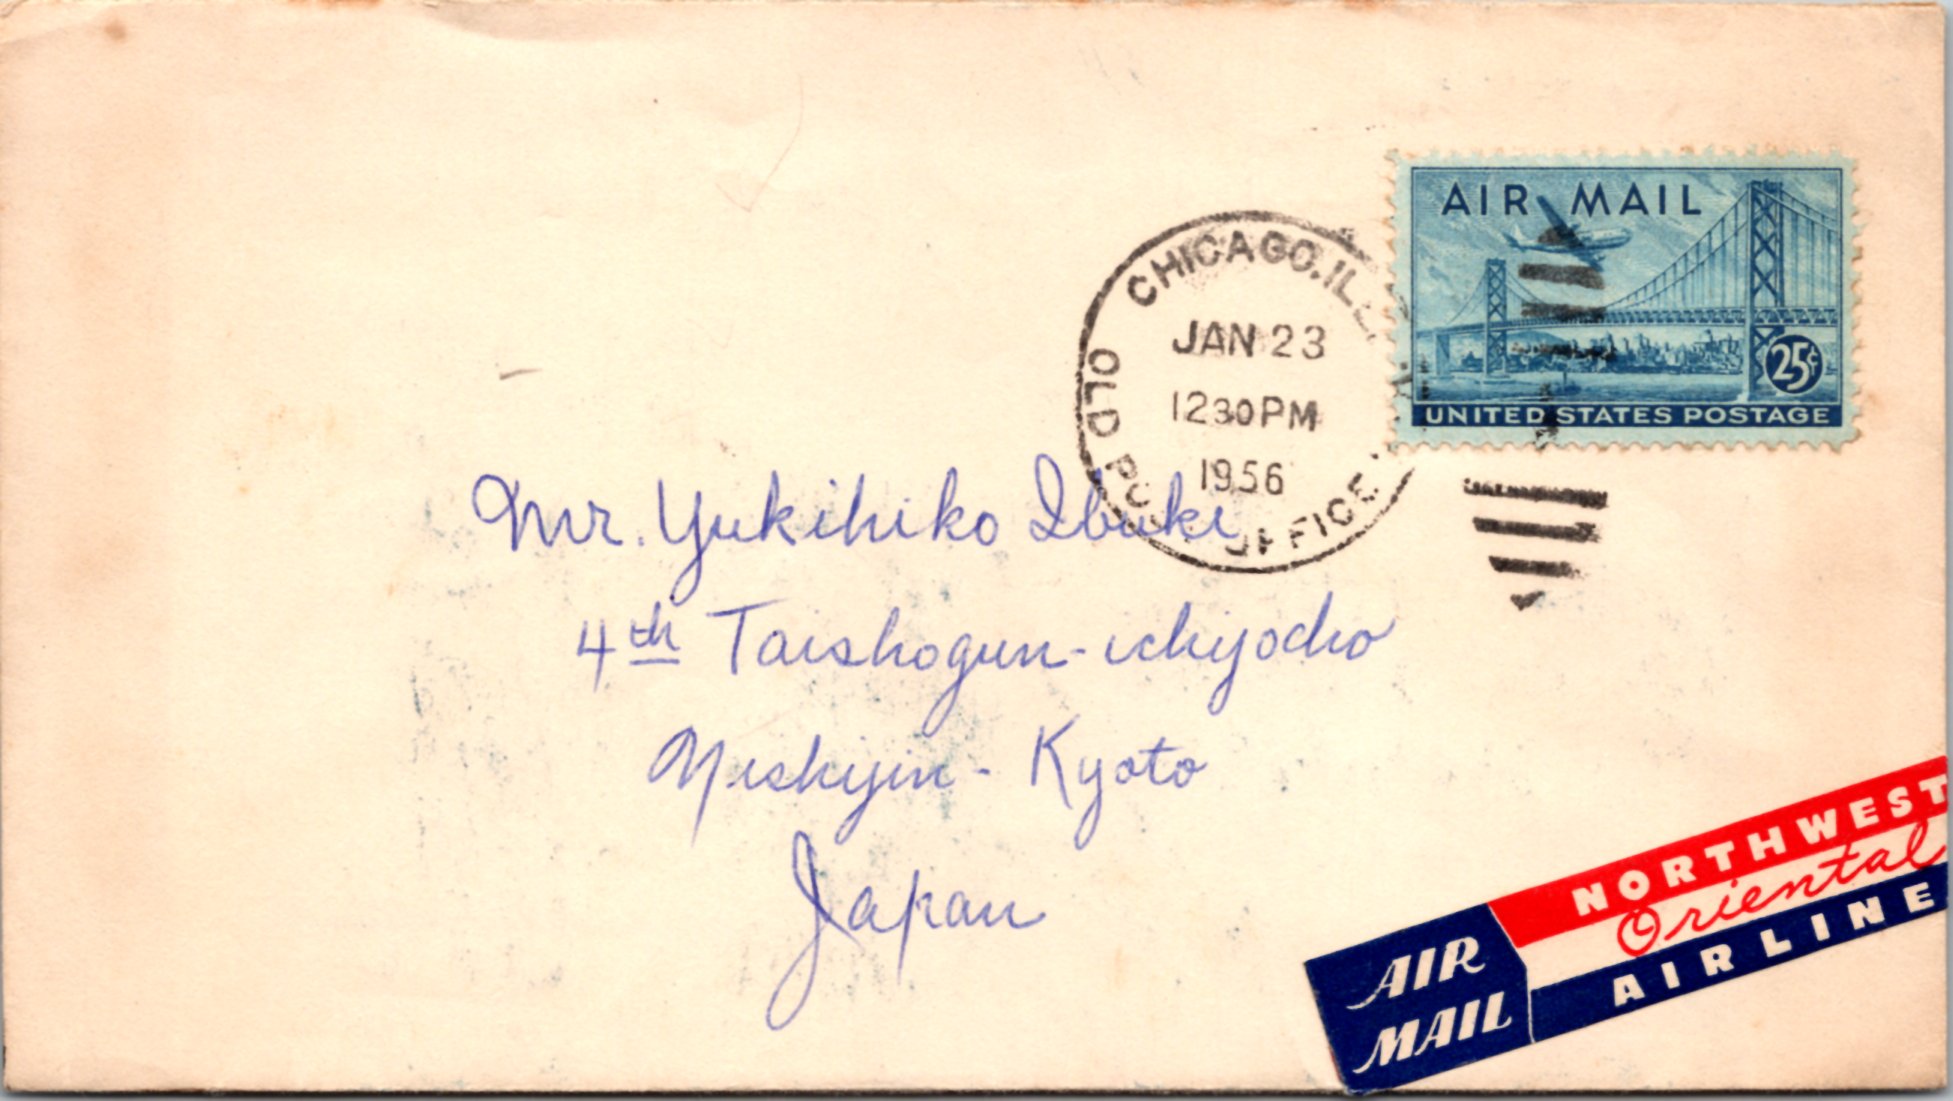 AIR MAIL
25¢
UNITED STATES POSTAGE
CHICAGO, ILL.
OLD POST OFFICE
JAN 23
1230 PM
1956
Mr. Yukihiko Ibuki
4th Taishogun-ichijocho
Nishijin - Kyoto
Japan
AIR MAIL
NORTHWEST
Oriental
AIRLINE